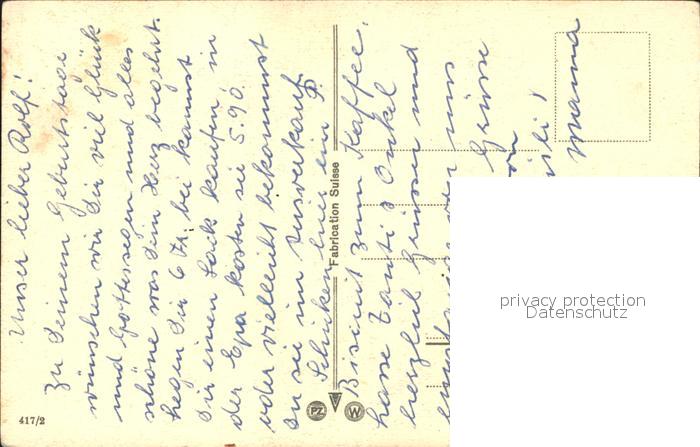 Unser lieber Rolf!
Zu Deinem Geburtstage
wünschen wir Dir viel Glück
und Gottessegen und alles
schöne was Dein Herz begehrt.
Legen Dir 6 Fr. bei kannst
Dir einen Sack kaufen in
der Epa kosten sie 5.90.
oder vielleicht bekommst
Du sie im Ausverkauf
Schicken hier ein
Biscuit zum Kaffee.
Tanti & Onkel
herzlich Grüssen und
uns
Grüsse
Mama
Fabrication Suisse
PZ
W
417/2
privacy protection
Datenschutz